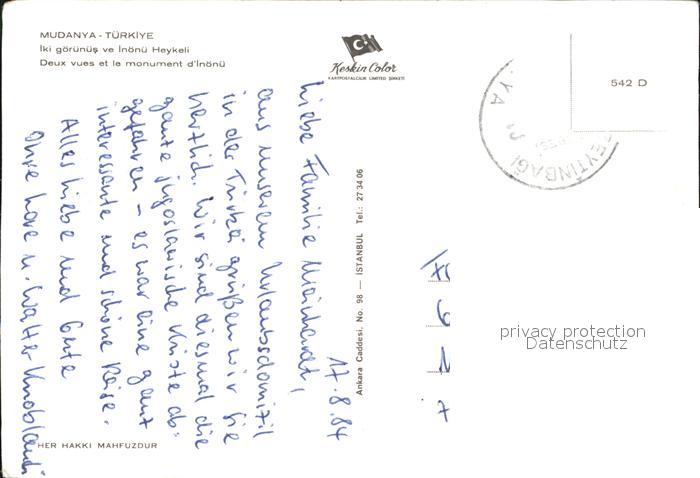 MUDANYA - TÜRKİYE
İki görünüş ve İnönü Heykeli
Deux vues et le monument d'İnönü
Keskin Color
KARTPOSTALCILIK LIMITED ŞİRKETİ
542 D
ZEYTINBAĞI
Ankara Caddesi, No. 98 — İSTANBUL Tel.: 27 34 06
17.8.84
Liebe Familie
aus unserem Urlaubsdomizil
in der Türkei grüßen wir Sie
herzlich. Wir sind diesmal die
ganze jugoslawische Küste ab-
gefahren - es war eine ganz
interessante und schöne Reise.
Alles Liebe und Gute
Ihre u. Walter
HER HAKKI MAHFUZDUR
privacy protection
Datenschutz